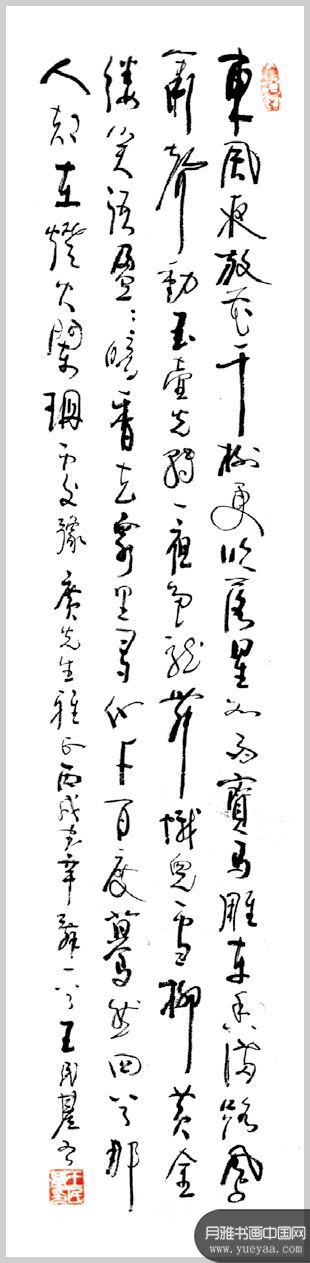 東風夜放花千樹更吹落星如雨寶馬雕車香滿路鳳
簫聲動玉壺光轉一夜魚龍舞蛾兒雪柳黃金
縷笑語盈盈暗香去眾里尋他千百度驀然回首那
人却在燈火闌珊處 廣先生雅正丙戌書辛詞一首王民
月雅书画中国网
www.yueyaa.com